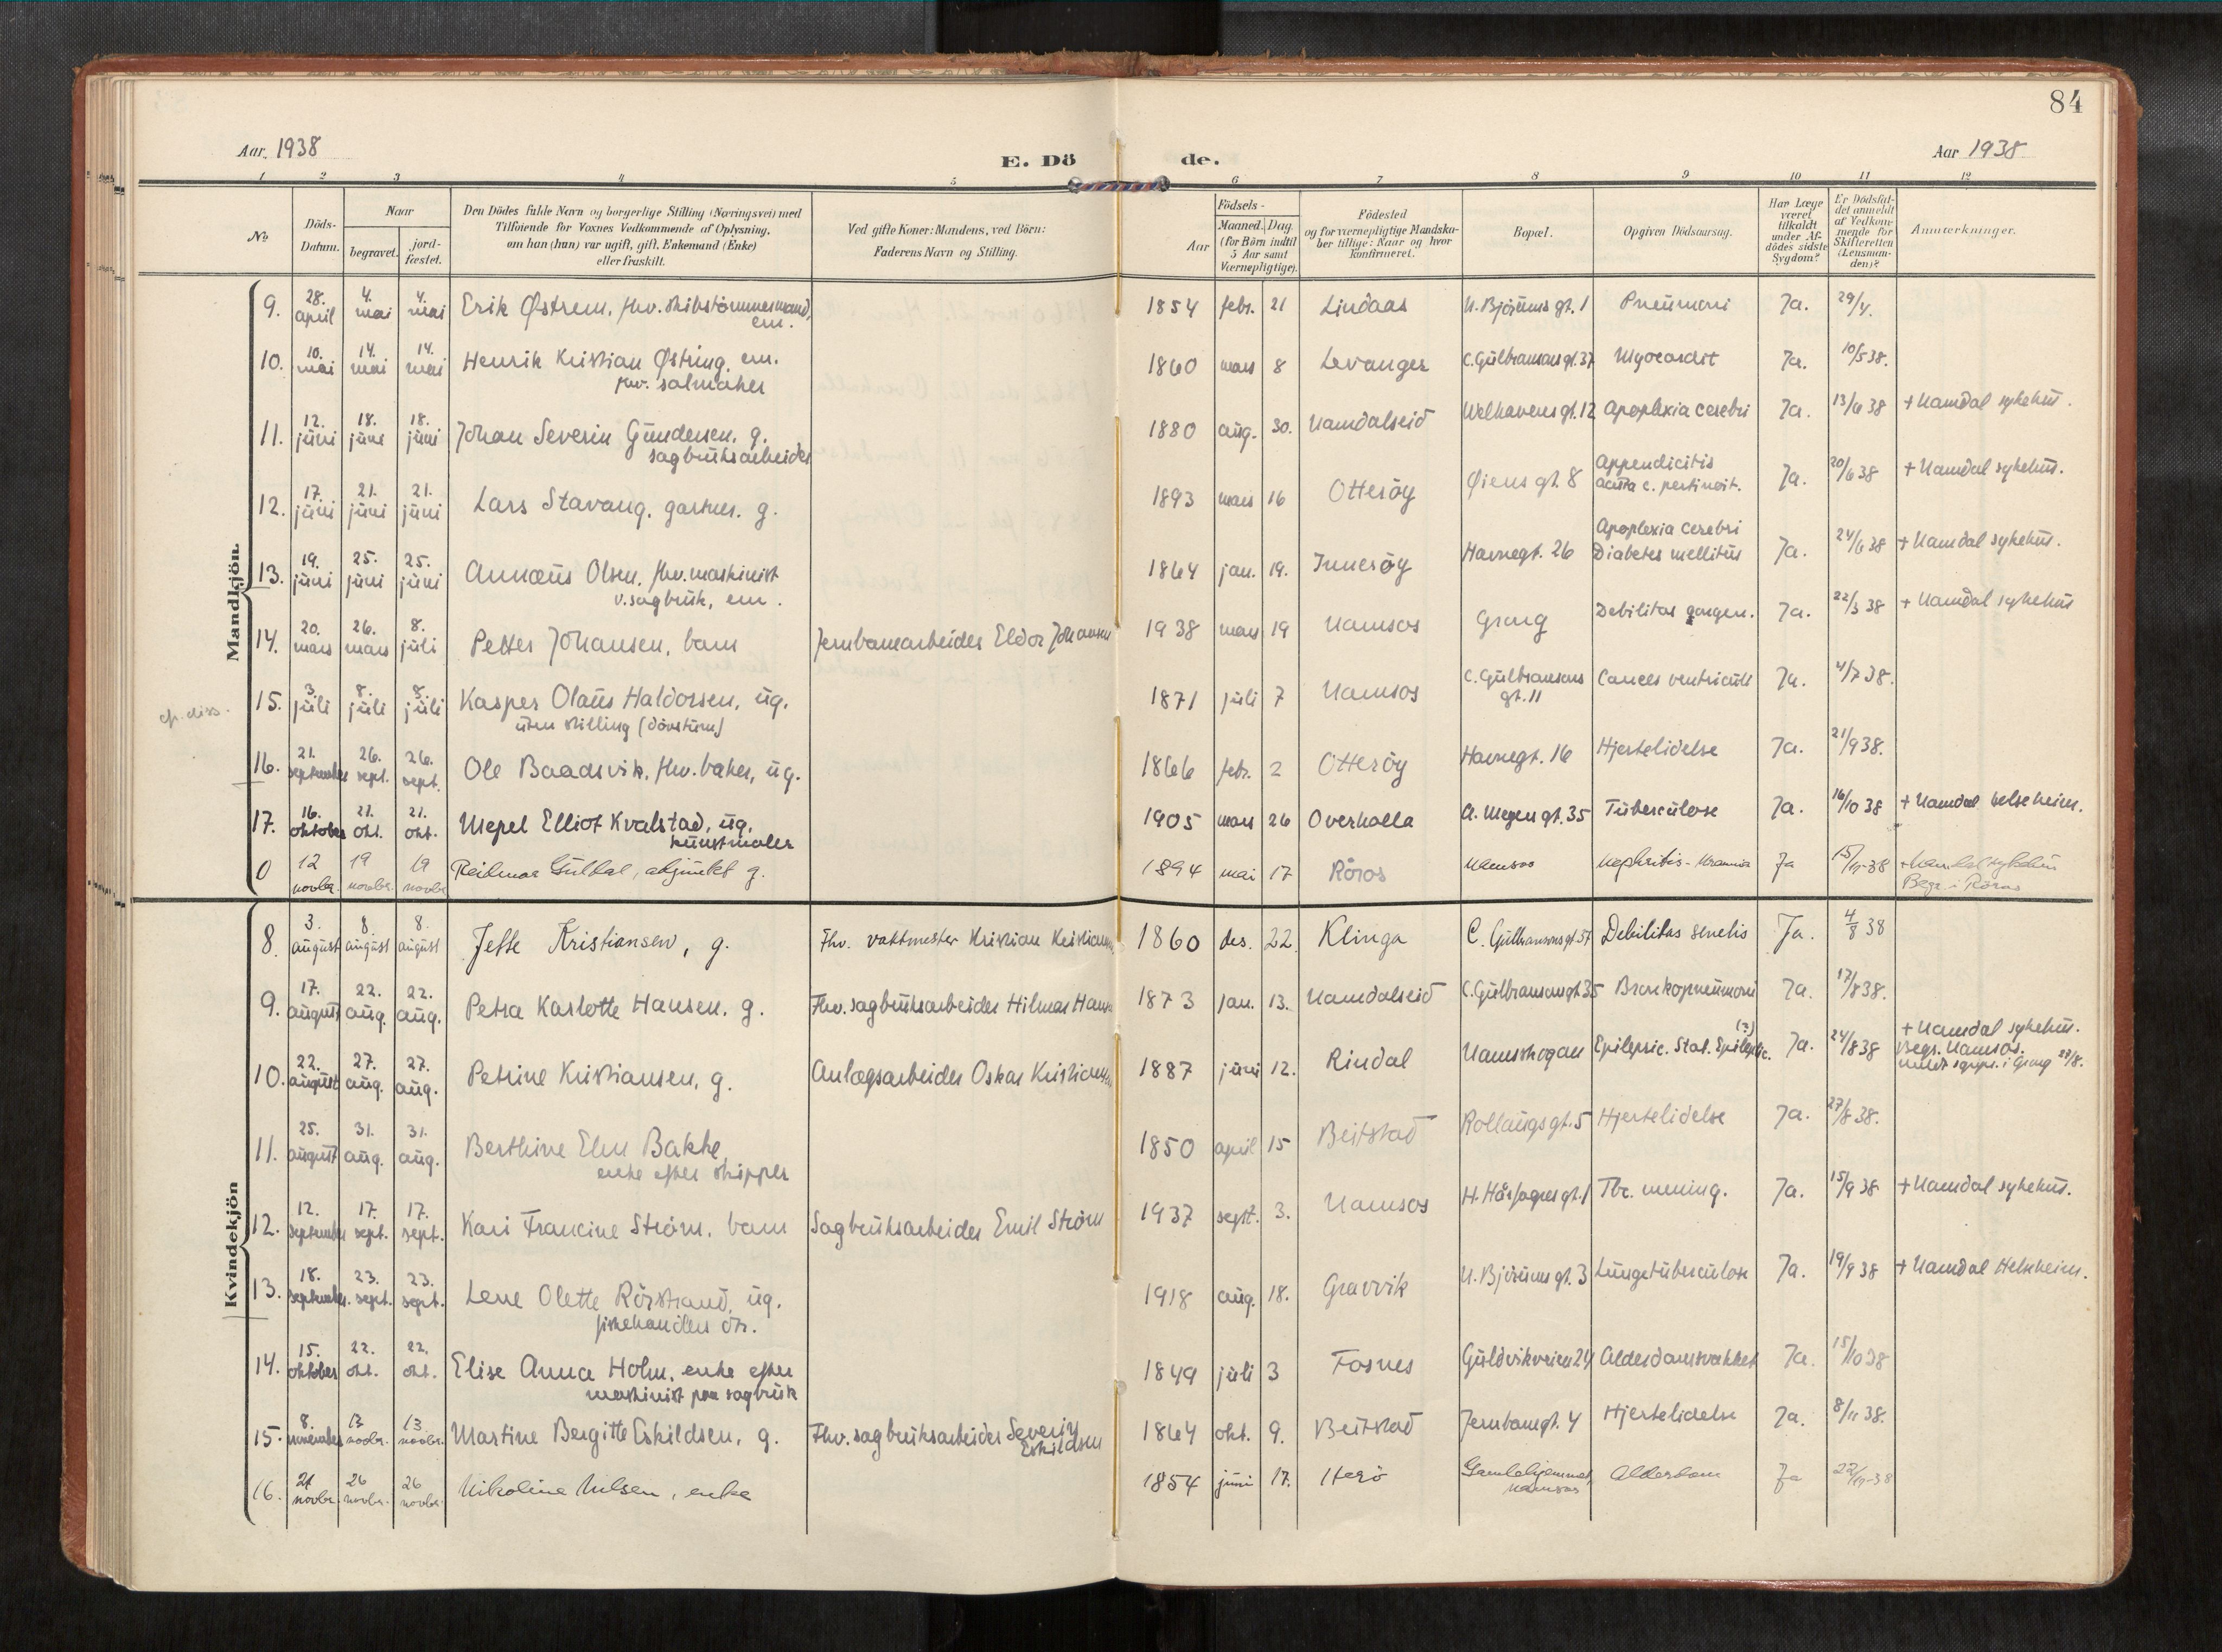 84
Aar 1938
E. Dö de.
Aar 1938
1 2 3 4 5 6 7 8 9 10 11 12
No
Döds-Datum.
Naar
begravet.
jord-fæstet.
Den Dödes fulde Navn og borgerlige Stilling (Næringsvei) med
Tilföiende for Voxnes Vedkommende af Oplysning,
om han (hun) var ugift, gift, Enkemand (Enke)
eller fraskilt.
Ved gifte Koner: Mandens, ved Börn:
Faderens Navn og Stilling.
Födsels-
Aar
Maaned. Dag.
(for Börn indtil
5 Aar samt
Værnepligtige).
Födested
og for værnepligtige Mandska-
ber tillige: Naar og hvor
konfirmeret.
Bopæl.
Opgiven Dödsaarsag.
Har Læge
været
tilkaldt
under Af-
dödes sidste
Sygdom?
Er Dödsfal-
det anmeldt
af Vedkom-
mende for
Skifteretten
(Lensman-
den)?
Anmærkninger.
Mandkjön.
9. 28. april 4. mai 4. mai Erik Østrem, fhv. skibstömmermand, em. 1854 febr. 21 Lindaas U. Bjørums gt. 1 Pneumoni Ja. 29/4.
10. 10. mai 14. mai 14. mai Henrik Kristian Østring, em. fhv. salmaker 1860 mars 8 Levanger C. Gulbransons gt. 37 Myocardit Ja. 10/5 38.
11. 12. juni 18. juni 18. juni Johan Severin Gundersen, g. sagbruksarbeider 1880 aug. 30. Namdalseid Welhavens gt. 12 Apoplexia cerebri Ja. 13/6 38 + Namdal sykehus.
12. 17. juni 21. juni 21. juni Lars Stavang, gartner. g. 1893 mars 16 Otterøy Øiens gt. 8 Appendicitis acuta c. Ja. 20/6 38 + Namdal sykehus.
13. 19. juni 25. juni 25. juni Annæus Olsen, fhv. maskinist v. sagbruk, em. 1864 jan. 19. Inderøy Havnegt. 26 Apoplexia cerebri Diabetes mellitus Ja. 24/6 38 + Namdal sykehus.
14. 20. mars 26. mars 8. juli Petter Johansen, barn Jernbanearbeider Eldor Johansen 1938 mars 19 Namsos Grong Debilitas Ja. 22/3 38 + Namdal sykehus
cfr. diss.
15. 3. juli 8. juli 8. juli Kasper Olaus Haldorsen, ug. uten stilling (døvstum) 1871 juli 7 Namsos C. Gulbransons gt. 11 Cancer ventriculi Ja. 4/7 38.
16. 21. september 26. sept. 26. sept. Ole Baadsvik, fhv. baker, ug. 1866 febr. 2 Otterøy Havnegt. 16 Hjertelidelse Ja. 21/9 38.
17. 16. oktober 21. okt. 21. okt. Meyel Elliot Kvalstad, ug. kunstmaler 1905 mars 26 Overhalla A. Meyers gt. 35 Tuberculose Ja. 16/10 38 + Namdal helseheim.
0 12 novbr. 19 novbr. 19 novbr. Reidmar Guldal, adjunkt g. 1894 mai 17 Röros Namsos Nephritis - Uræmia Ja 15/11-38 + Namdal sykehus Begr. i Röros
Kvindekjön
8. 3. august 8. august 8. august Jette Kristiansen, g. Fhv. vaktmester Kristian Kristiansen 1860 des. 22. Klinga C. Gulbransons gt. 37 Debilitas senelis Ja. 4/8 38
9. 17. august 22. aug. 22. aug. Petra Karlotte Hansen, g. Fhv. sagbruksarbeider Hilmar Hansen 1873 jan. 13. Namdalseid C. Gulbransons gt. 35 Bronkopneumoni Ja. 17/8 38.
10. 22. august 27. aug. 27. aug. Petrine Kristiansen, g. Anlægsarbeider Oskar Kristiansen 1887 juni 12. Rindal Namsskogan Epilepsie. Stat. Epileptic. (?) Ja. 24/8 38 + Namdal sykehus. Begr. Namsos. i Grong 27/8.
11. 25. august 31. aug. 31. aug. Berthine Elen Bakke, enke efter skipper 1850 april 15 Beitstad Rollaugs gt. 5 Hjertelidelse Ja. 27/8 38.
12. 12. september 17. sept. 17. sept. Kari Francine Strøm, barn Sagbruksarbeider Emil Strøm 1937 sept. 3. Namsos H. Hårfagres gt. 1 Tbc. mening. Ja. 15/9 38 + Namdal sykehus.
13. 18. september. 23. sept. 23. sept. Lene Olette Rörstrand, ug. fiskehandler dtr. 1918 aug. 18. Gravvik U. Bjørums gt. 3 Lungetuberculose Ja. 19/9 38 + Namdal Helseheim.
14. 15. oktober 22. okt. 22. okt. Elise Anna Holm, enke efter maskinist paa sagbruk 1849 juli 3 Fosnes Guldvikveien 24 Alderdomsvakhet Ja. 15/10 38
15. 8. november 13 novbr. 13. novbr. Martine Bergitte Eskildsen, g. Fhv. sagbruksarbeider Severin Eskildsen 1864 okt. 9. Beitstad Jernbanegt. 4 Hjertelidelse Ja. 8/11 38.
16. 21 novbr. 26 novbr. 26 novbr. Nikoline Nilsen, enke 1854 juni 17. Herö Gamlehjemmet, Namsos Alderdom Ja 22/11-38